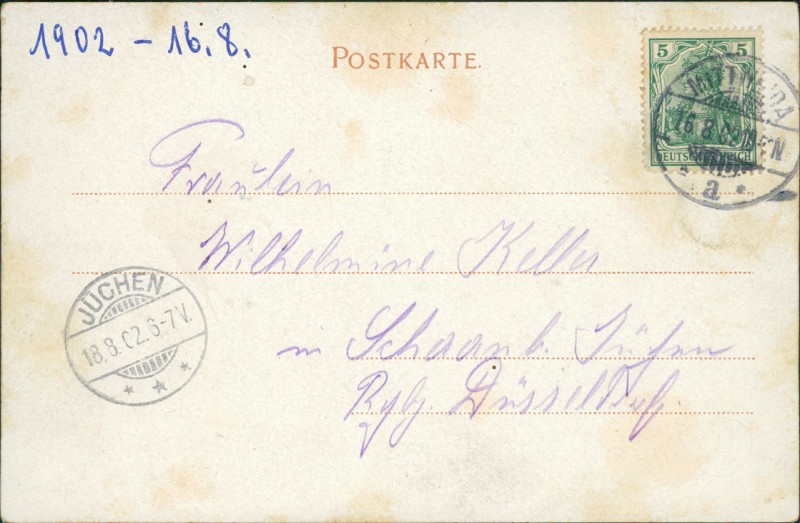 1902 - 16.8.
POSTKARTE.
5 5
DEUTSCHES REICH
16.8.
a
Fräulein
Wilhelmine Keller
in Schaanb. Jüchen
Rgbz. Düsseldorf.
JÜCHEN
18.8.02.6-7V.